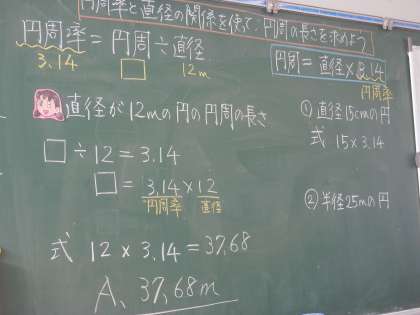 円周率と直径の関係を使って、円周の長さを求めよう
円周率＝円周÷直径
3.14 □ 12m
直径が12mの円の円周の長さ
□÷12＝3.14
□＝3.14×12
円周率 直径
式 12×3.14＝37.68
A、37.68m
円周＝直径×3.14
円周率
①直径15cmの円
式 15×3.14
②半径25mの円